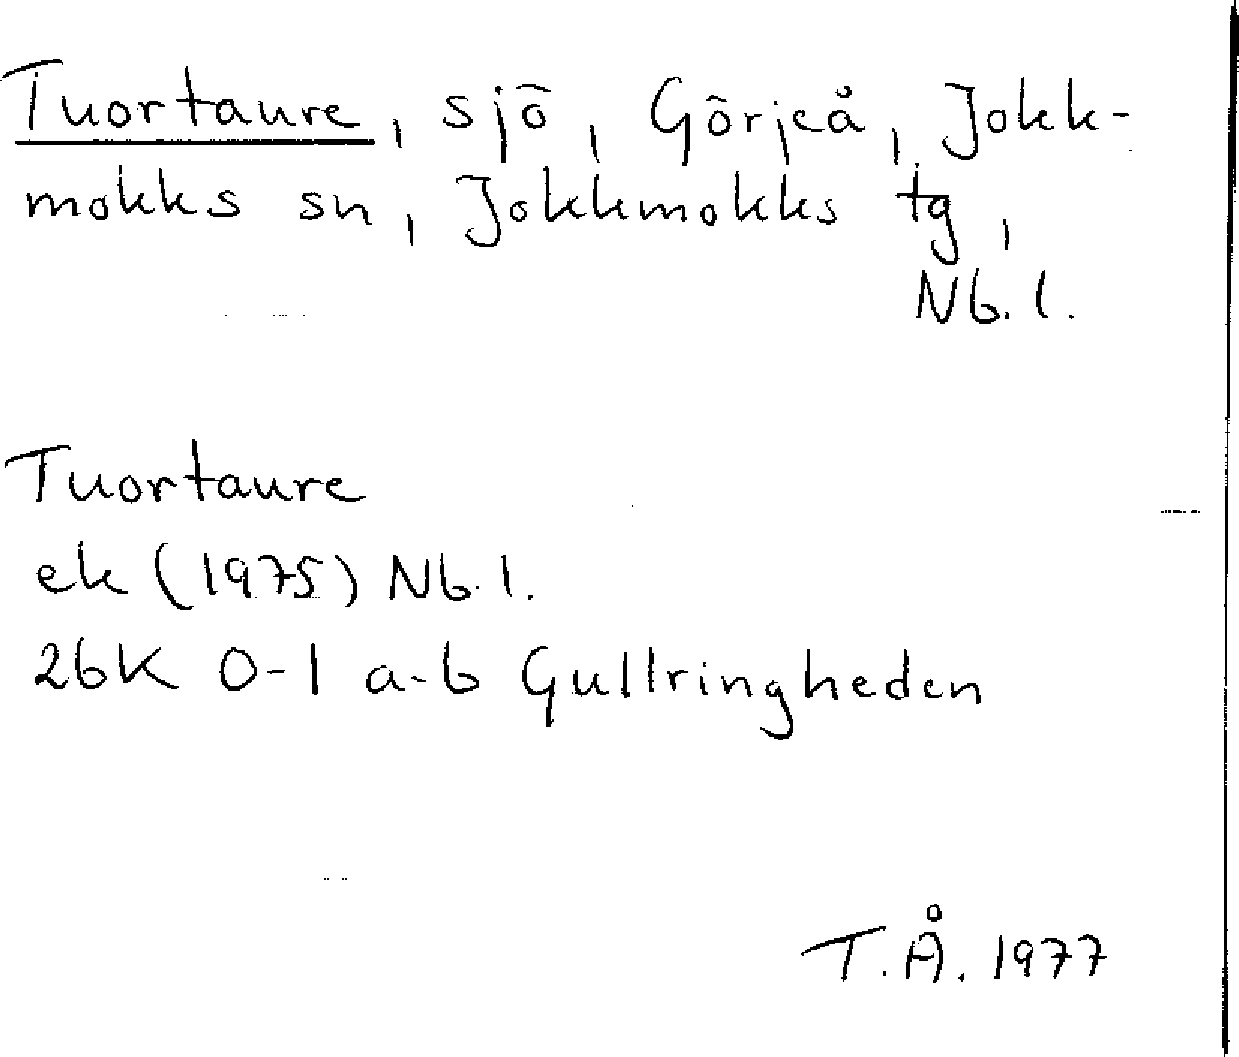 Tuortaure, sjö, Görjeå, Jokk-
mokks sn, Jokkmokks tg,
Nb. l.
Tuortaure
ek (1975) Nb. l.
26K 0-1 a-b Gullringheden
T.Å. 1977